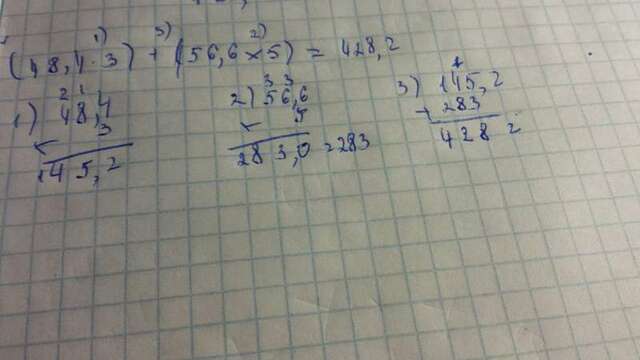 1) 3) 2)
(48,4·3) + (56,6×5) = 428,2
2 1 3 3 1
1) 48,4 2) 56,6 3) 145,2
× 3 × 5 + 283
145,2 283,0 = 283 428 2